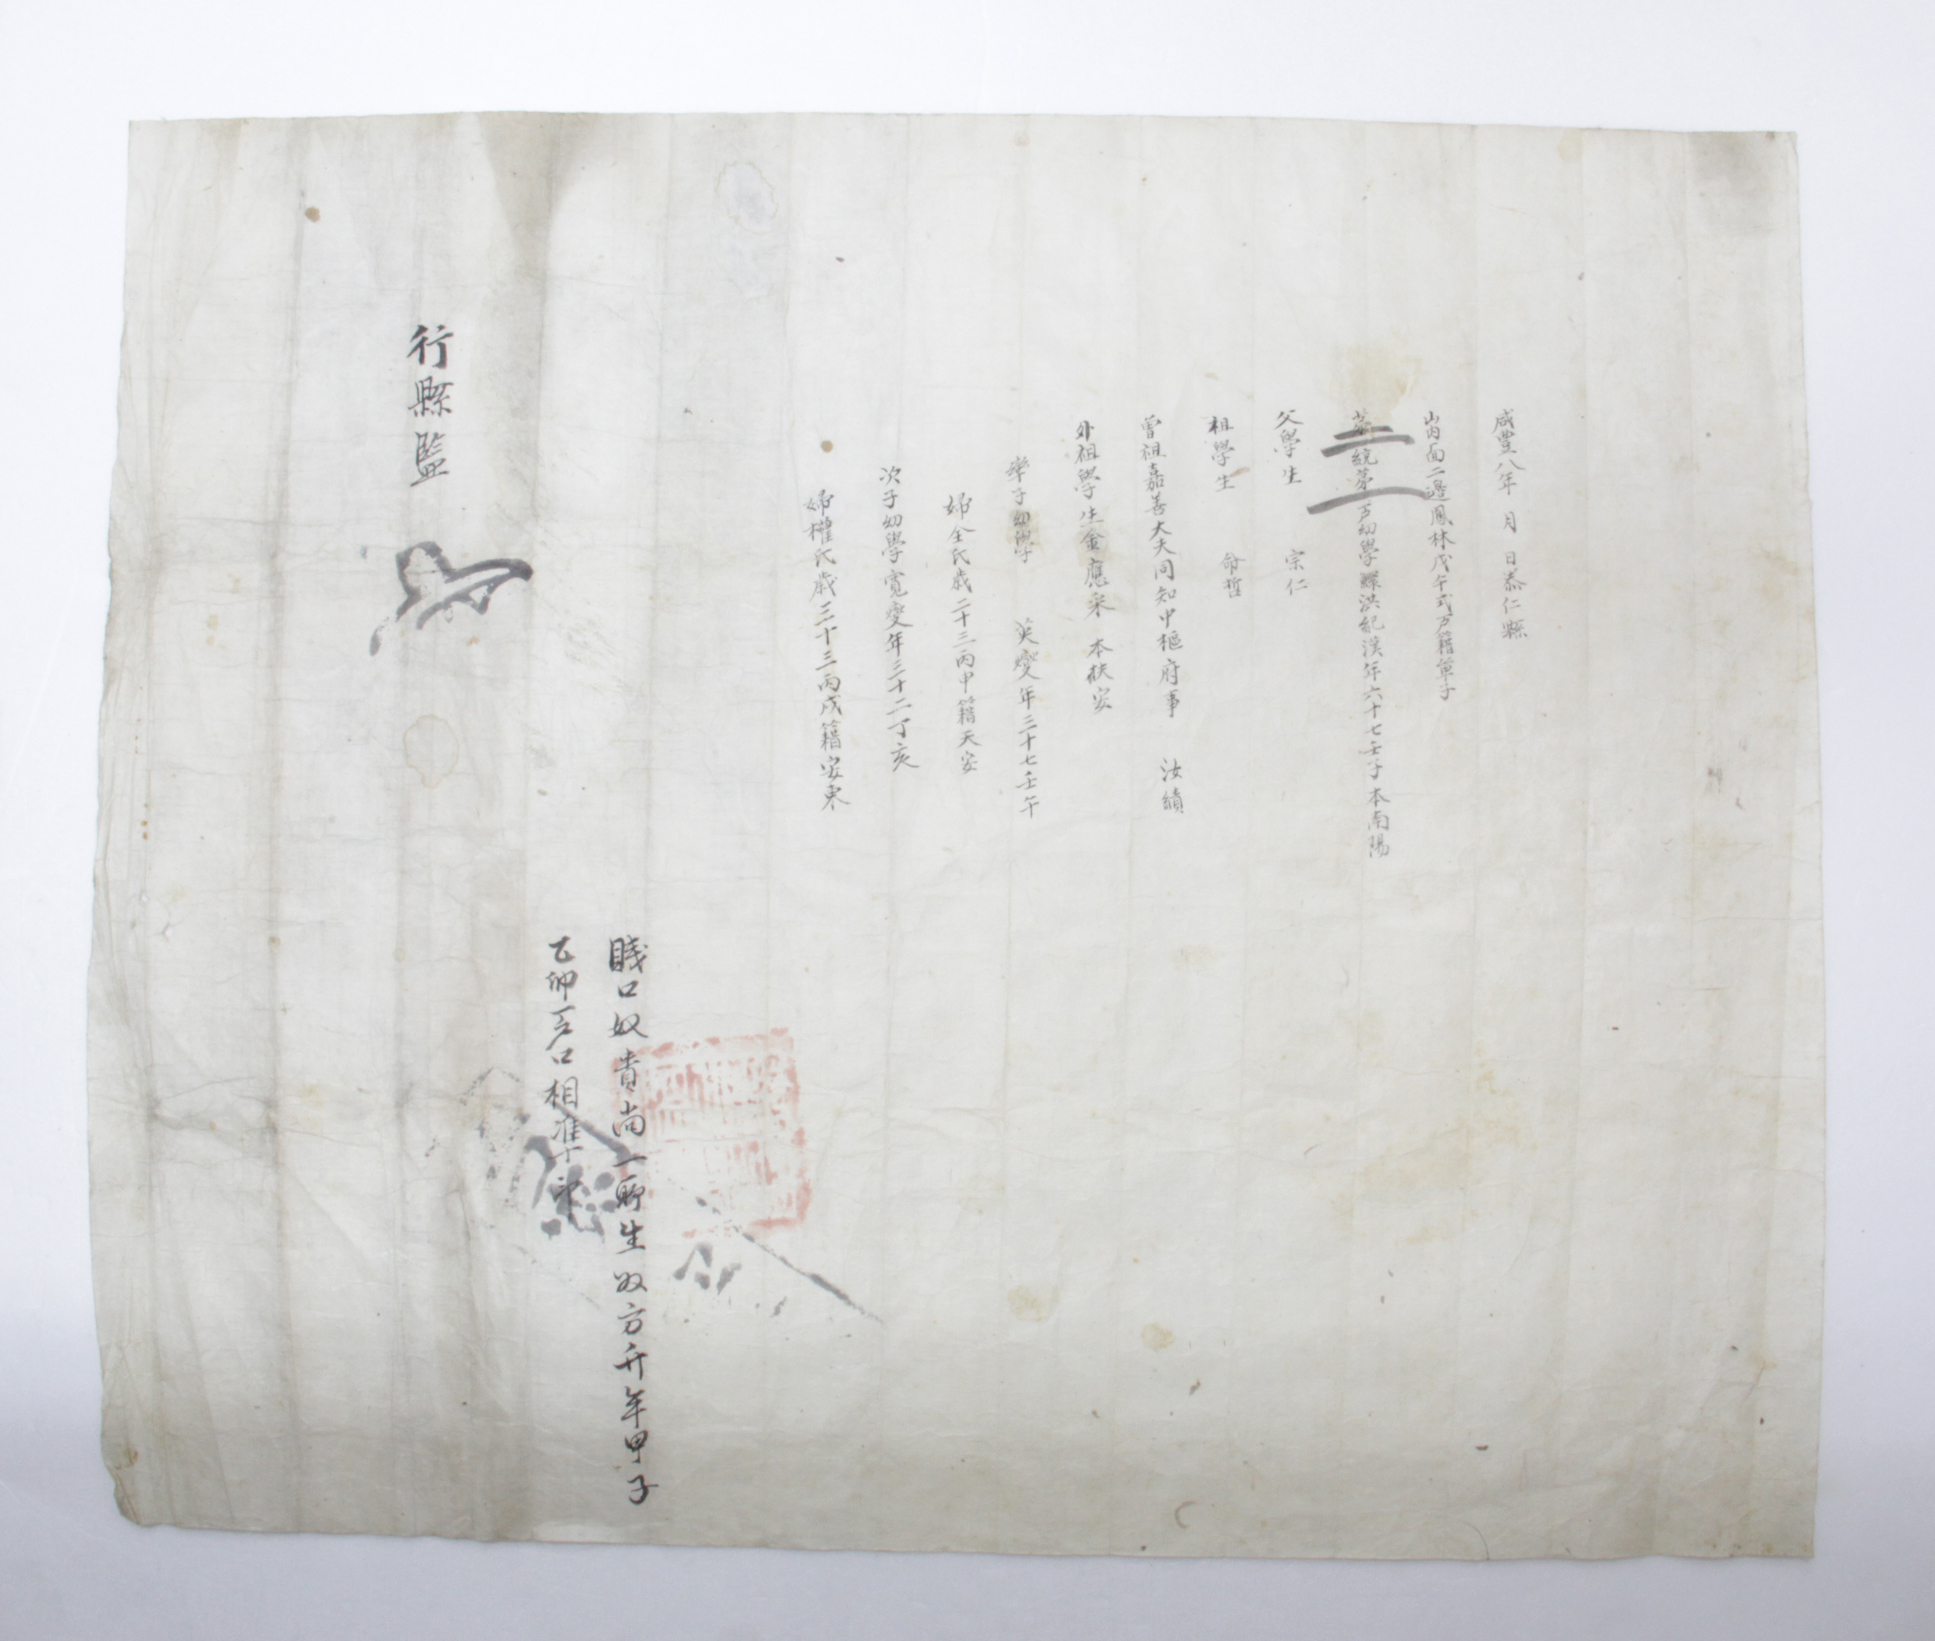 咸豊八年 月 日泰仁縣
山內面二邊鳳林戊午式戶籍單子
第二統第一戶幼學鰥洪紀漢年六十七壬子本南陽
父學生 宗仁
祖學生 命哲
曾祖嘉善大夫同知中樞府事 汝績
外祖學生金應采 本扶安
率子幼學 英燮年三十七壬午
婦全氏歲二十三丙申籍天安
次子幼學寬燮年三十二丁亥
婦權氏歲三十三丙戌籍安東
賤口奴貴尚一所生奴方升年甲子
乙卯戶口相准印
行縣監